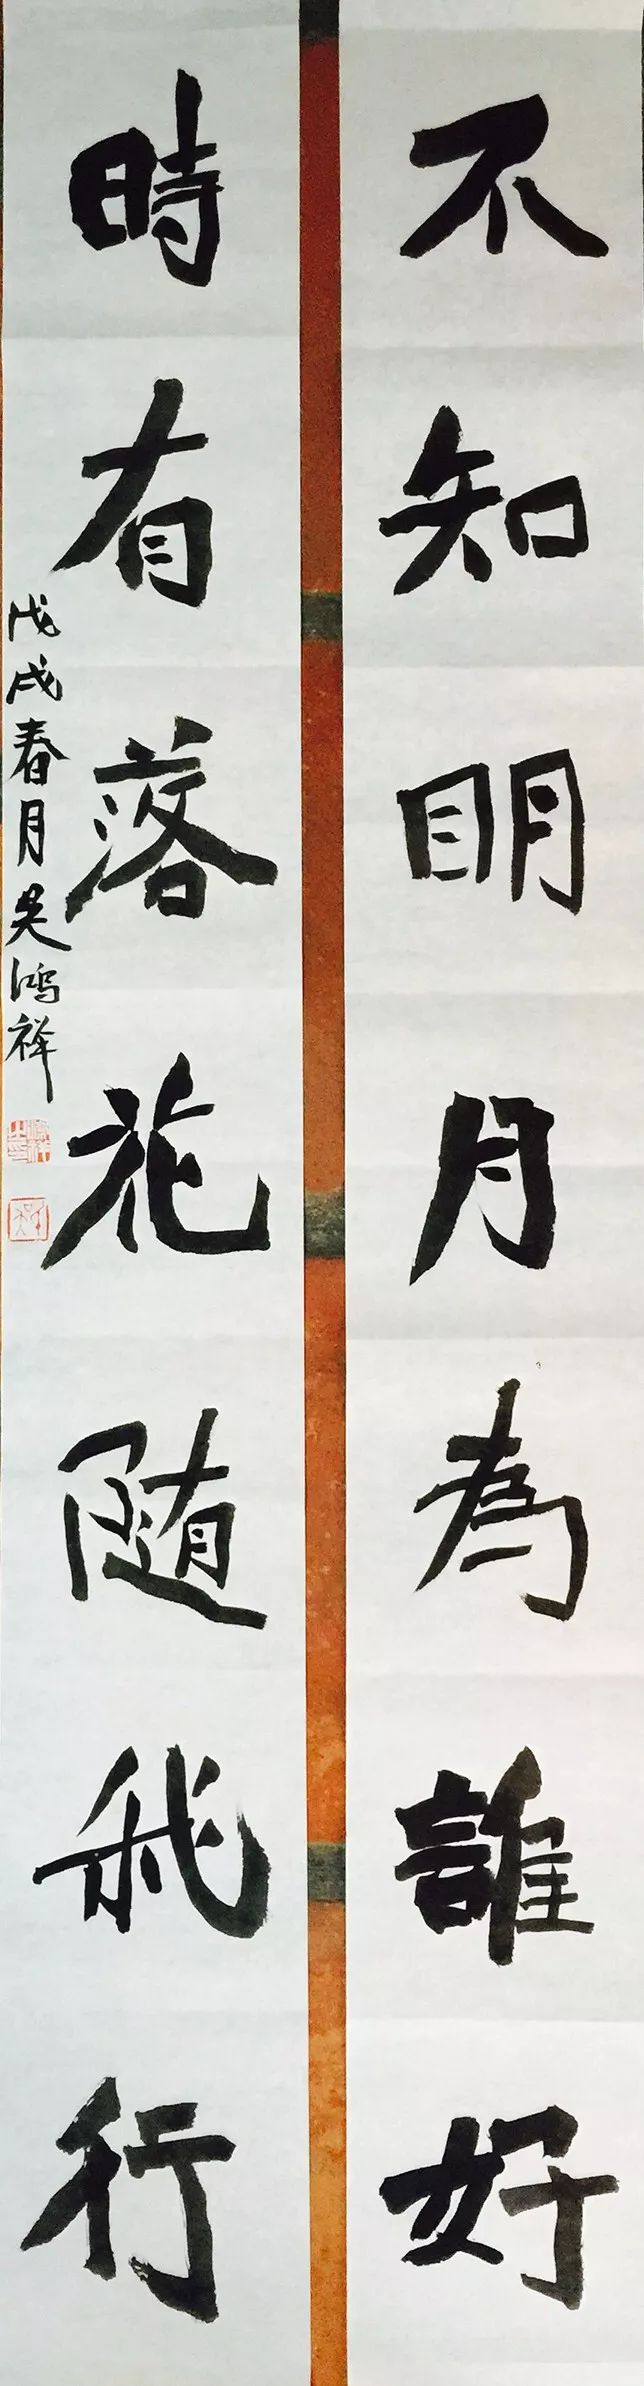 不知明月為誰好
時有落花随飛行
戊戌春月吴鴻祥